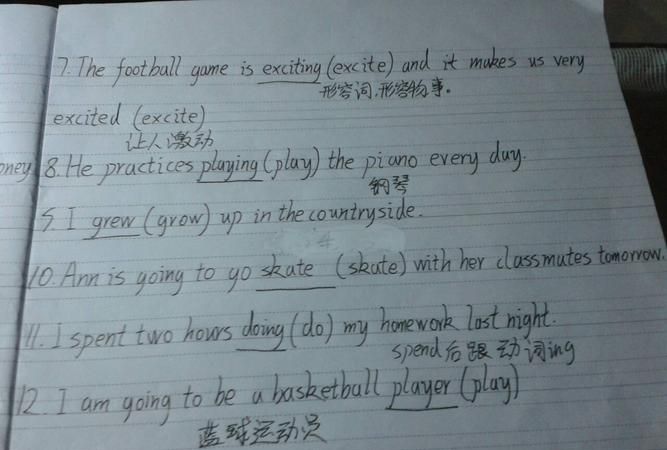 7. The football game is exciting (excite) and it makes us very
形容词.形容物事。
excited (excite)
让人激动
oney
8. He practices playing (play) the piano every day.
钢琴
9. I grew (grow) up in the countryside.
10. Ann is going to go skate (skate) with her classmates tomorrow.
11. I spent two hours doing (do) my homework last night.
spend后跟动词ing
12. I am going to be a basketball player (play)
蓝球运动员